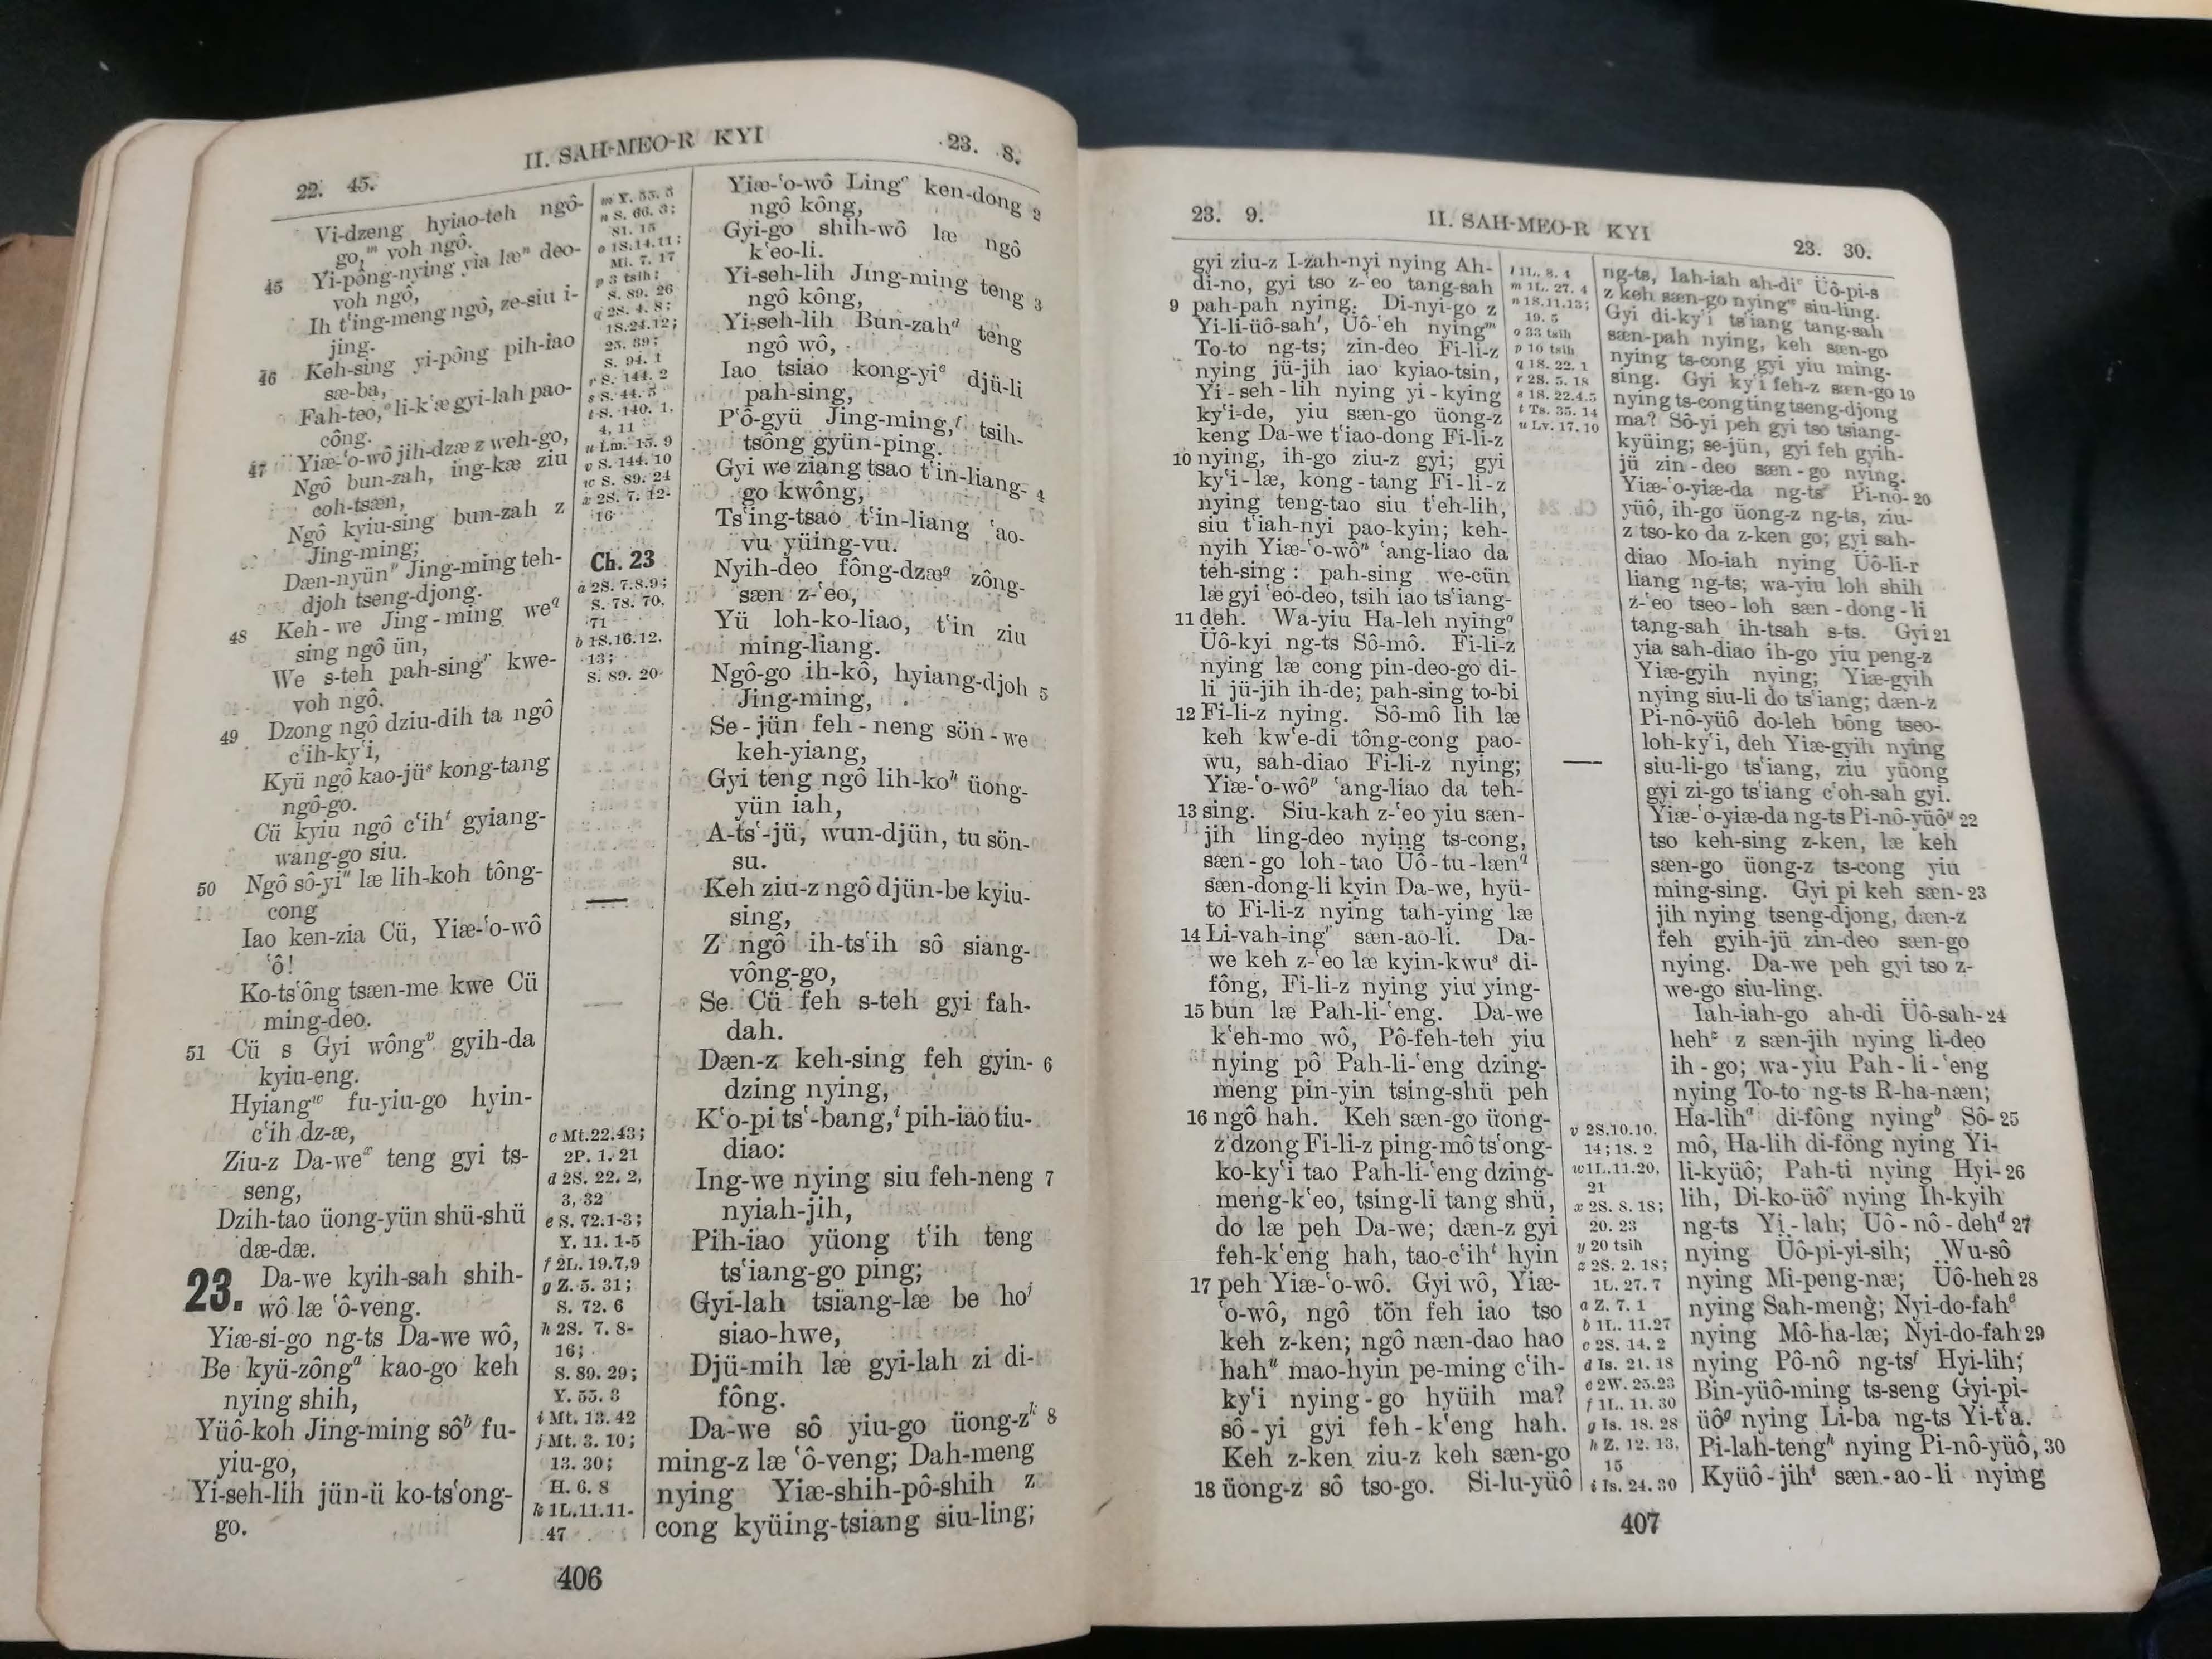 22. 45.
II. SAH-MEO-R KYI
23. 8.
Vi-dzeng hyiao-teh ngô-
go,ᵐ voh ngô.
45 Yi-pông-nying yia læⁿ deo-
voh ngô,
Ih tʻing-meng ngô, ze-siu i-
jing.
46 Keh-sing yi-pông pih-iao
sæ-ba,
Fah-teo,ᵒ li-kʻæ gyi-lah pao-
công.
47 Yiæ-ʻo-wô jih-dzæ z weh-go,
Ngô bun-zah, ing-kæ ziu
coh-tsæn,
Ngô kyiu-sing bun-zah z
Jing-ming;
Dæn-nyünᵖ Jing-ming teh-
djoh tseng-djong.
48 Keh-we Jing-ming we^q
sing ngô ün,
We s-teh pah-singʳ kwe-
voh ngô.
49 Dzong ngô dziu-dih ta ngô
cʻih-kyʻi,
Kyü ngô kao-jüˢ kong-tang
ngô-go.
Cü kyiu ngô cʻihᵗ gyiang-
wang-go siu.
50 Ngô sô-yiᵘ læ lih-koh tông-
cong
Iao ken-zia Cü, Yiæ-ʻo-wô
ʻô!
Ko-tsʻông tsæn-me kwe Cü
ming-deo.
51 Cü s Gyi wôngᵛ gyih-da
kyiu-eng.
Hyiangʷ fu-yiu-go hyin-
cʻih dz-æ,
Ziu-z Da-weˣ teng gyi ts-
seng,
Dzih-tao üong-yün shü-shü
dæ-dæ.
23. Da-we kyih-sah shih-
wô læ ʻô-veng.
Yiæ-si-go ng-ts Da-we wô,
Be kyü-zôngᵃ kao-go keh
nying shih,
Yüô-koh Jing-ming sôᵇ fu-
yiu-go,
Yi-seh-lih jün-ü ko-tsʻong-
go.
m Y. 55. 3
n S. 66. 3;
81. 15
o 1S.14.11;
Mi. 7. 17
p 3 tsih;
S. 89. 26
q 2S. 4. 8;
1S.24.12;
25. 39;
S. 94. 1
r S. 144. 2
s S. 44. 5
t S. 140. 1,
4, 11
u Lm. 15. 9
v S. 144. 10
w S. 89. 24
x 2S. 7. 12-
16
Ch. 23
a 2S. 7.8.9;
S. 78. 70,
71
b 1S.16.12,
13;
S. 89. 20
c Mt.22.43;
2P. 1. 21
d 2S. 22. 2,
3, 32
e S. 72.1-3;
Y. 11. 1-5
f 2L. 19.7,9
g Z. 5. 31;
S. 72. 6
h 2S. 7. 8-
16;
S. 89. 29;
Y. 55. 3
i Mt. 13. 42
j Mt. 3. 10;
13. 30;
H. 6. 8
k 1L.11.11-
47
Yiæ-ʻo-wô Lingᶜ ken-dong 2
ngô kông,
Gyi-go shih-wô læ ngô
kʻeo-li.
Yi-seh-lih Jing-ming teng 3
ngô kông,
Yi-seh-lih Bun-zahᵈ teng
ngô wô,
Iao tsiao kong-yiᵉ djü-li
pah-sing,
Pʻô-gyü Jing-ming,ᶠ tsih-
tsông gyün-ping.
Gyi we ziang tsao tʻin-liang- 4
go kwông,
Tsʻing-tsao tʻin-liang ʻao-
vu yüing-vu.
Nyih-deo fông-dzæᵍ zông-
sæn z-ʻeo,
Yü loh-ko-liao, tʻin ziu
ming-liang.
Ngô-go ih-kô, hyiang-djoh 5
Jing-ming,
Se-jün feh-neng sön-we
keh-yiang,
Gyi teng ngô lih-koʰ üong-
yün iah,
A-tsʻ-jü, wun-djün, tu sön-
su.
Keh ziu-z ngô djün-be kyiu-
sing,
Z ngô ih-tsʻih sô siang-
vông-go,
Se Cü feh s-teh gyi fah-
dah.
Dæn-z keh-sing feh gyin- 6
dzing nying,
Kʻo-pi tsʻ-bang,ⁱ pih-iao tiu-
diao:
Ing-we nying siu feh-neng 7
nyiah-jih,
Pih-iao yüong tʻih teng
tsʻiang-go ping;
Gyi-lah tsiang-læ be hoʲ
siao-hwe,
Djü-mih læ gyi-lah zi di-
fông.
Da-we sô yiu-go üong-zᵏ 8
ming-z læ ʻô-veng; Dah-meng
nying Yiæ-shih-pô-shih z
cong kyüing-tsiang siu-ling;
406
23. 9.
II. SAH-MEO-R KYI
23. 30.
gyi ziu-z I-zah-nyi nying Ah-
di-no, gyi tso z-ʻeo tang-sah
9 pah-pah nying. Di-nyi-go z
Yi-li-üô-sahˡ, Üô-ʻeh nyingᵐ
To-to ng-ts; zin-deo Fi-li-z
nying jü-jih iao kyiao-tsin,
Yi-seh-lih nying yi-kying
kyʻi-de, yiu sæn-go üong-z
keng Da-we tʻiao-dong Fi-li-z
10 nying, ih-go ziu-z gyi; gyi
kyʻi-læ, kong-tang Fi-li-z
nying teng-tao siu tʻeh-lih,
siu tʻiah-nyi pao-kyin; keh-
nyih Yiæ-ʻo-wôⁿ ʻang-liao da
teh-sing: pah-sing we-cün
læ gyi ʻeo-deo, tsih iao tsʻiang-
11 deh. Wa-yiu Ha-leh nyingᵒ
Üô-kyi ng-ts Sô-mô. Fi-li-z
nying læ cong pin-deo-go di-
li jü-jih ih-de; pah-sing to-bi
12 Fi-li-z nying. Sô-mô lih læ
keh kwʻe-di tông-cong pao-
wu, sah-diao Fi-li-z nying;
Yiæ-ʻo-wôᵖ ʻang-liao da teh-
13 sing. Siu-kah z-ʻeo yiu sæn-
jih ling-deo nying ts-cong,
sæn-go loh-tao Üô-tu-læn^q
sæn-dong-li kyin Da-we, hyü-
to Fi-li-z nying tah-ying læ
14 Li-vah-ingʳ sæn-ao-li. Da-
we keh z-ʻeo læ kyin-kwuˢ di-
fông, Fi-li-z nying yiu ying-
15 bun læ Pah-li-ʻeng. Da-we
kʻeh-mo wô, Pô-feh-teh yiu
nying pô Pah-li-ʻeng dzing-
meng pin-yin tsing-shü peh
16 ngô hah. Keh sæn-go üong-
z dzong Fi-li-z ping-mô tsʻong-
ko-kyʻi tao Pah-li-ʻeng dzing-
meng-kʻeo, tsing-li tang shü,
do læ peh Da-we; dæn-z gyi
feh-kʻeng hah, tao-cʻihᵗ hyin
17 peh Yiæ-ʻo-wô. Gyi wô, Yiæ-
ʻo-wô, ngô tön feh iao tso
keh z-ken; ngô næn-dao hao
hahᵘ mao-hyin pe-ming cʻih-
kyʻi nying-go hyüih ma?
sô-yi gyi feh-kʻeng hah.
Keh z-ken ziu-z keh sæn-go
18 üong-z sô tso-go. Si-lu-yüô
l 1L. 8. 4
m 1L. 27. 4
n 1S.11.13;
19. 5
o 33 tsih
p 10 tsih
q 1S. 22. 1
r 2S. 5. 18
s 1S. 22.4.5
t Ts. 35. 14
u Lv. 17. 10
v 2S.10.10,
14; 18. 2
w 1L.11.20,
21
x 2S. 8. 18;
20. 23
y 20 tsih
z 2S. 2. 18;
1L. 27. 7
a Z. 7. 1
b 1L. 11.27
c 2S. 14. 2
d Is. 21. 18
e 2W. 25.23
f 1L. 11. 30
g Is. 18. 28
h Z. 12. 13,
15
i Is. 24. 30
ng-ts, Iah-iah ah-diᵛ Üô-pi-s
z keh sæn-go nyingʷ siu-ling.
Gyi di-kyʻi tsʻiang tang-sah
sæn-pah nying, keh sæn-go
nying ts-cong gyi yiu ming-
sing. Gyi kyʻi feh-z sæn-go 19
nying ts-cong ting tseng-djong
ma? Sô-yi peh gyi tso tsiang-
kyüing; se-jün, gyi feh gyih-
jü zin-deo sæn-go nying.
Yiæ-ʻo-yiæ-da ng-tsˣ Pi-nô- 20
yüô, ih-go üong-z ng-ts, ziu-
z tso-ko da z-ken go; gyi sah-
diao Mo-iah nying Üô-li-r
liang ng-ts; wa-yiu loh shih
z-ʻeo tseo-loh sæn-dong-li
tang-sah ih-tsah s-ts. Gyi 21
yia sah-diao ih-go yiu peng-z
Yiæ-gyih nying; Yiæ-gyih
nying siu-li do tsʻiang; dæn-z
Pi-nô-yüô do-leh bông tseo-
loh-kyʻi, deh Yiæ-gyih nying
siu-li-go tsʻiang, ziu yüong
gyi zi-go tsʻiang cʻoh-sah gyi.
Yiæ-ʻo-yiæ-da ng-ts Pi-nô-yüôʸ 22
tso keh-sing z-ken, læ keh
sæn-go üong-z ts-cong yiu
ming-sing. Gyi pi keh sæn- 23
jih nying tseng-djong, dæn-z
feh gyih-jü zin-deo sæn-go
nying. Da-we peh gyi tso z-
we-go siu-ling.
Iah-iah-go ah-di Üô-sah- 24
hehᶻ z sæn-jih nying li-deo
ih-go; wa-yiu Pah-li-ʻeng
nying To-to ng-ts R-ha-næn;
Ha-lihᵃ di-fông nyingᵇ Sô- 25
mô, Ha-lih di-fông nying Yi-
li-kyüô; Pah-ti nying Hyi- 26
lih, Di-ko-üôᶜ nying Ih-kyih
ng-ts Yi-lah; Üô-nô-dehᵈ 27
nying Üô-pi-yi-sih; Wu-sô
nying Mi-peng-næ; Üô-heh 28
nying Sah-meng; Nyi-do-fahᵉ
nying Mô-ha-læ; Nyi-do-fah 29
nying Pô-nô ng-tsᶠ Hyi-lih;
Bin-yüô-ming ts-seng Gyi-pi-
üôᵍ nying Li-ba ng-ts Yi-tʻa.
Pi-lah-tengʰ nying Pi-nô-yüô, 30
Kyüô-jihⁱ sæn-ao-li nying
407